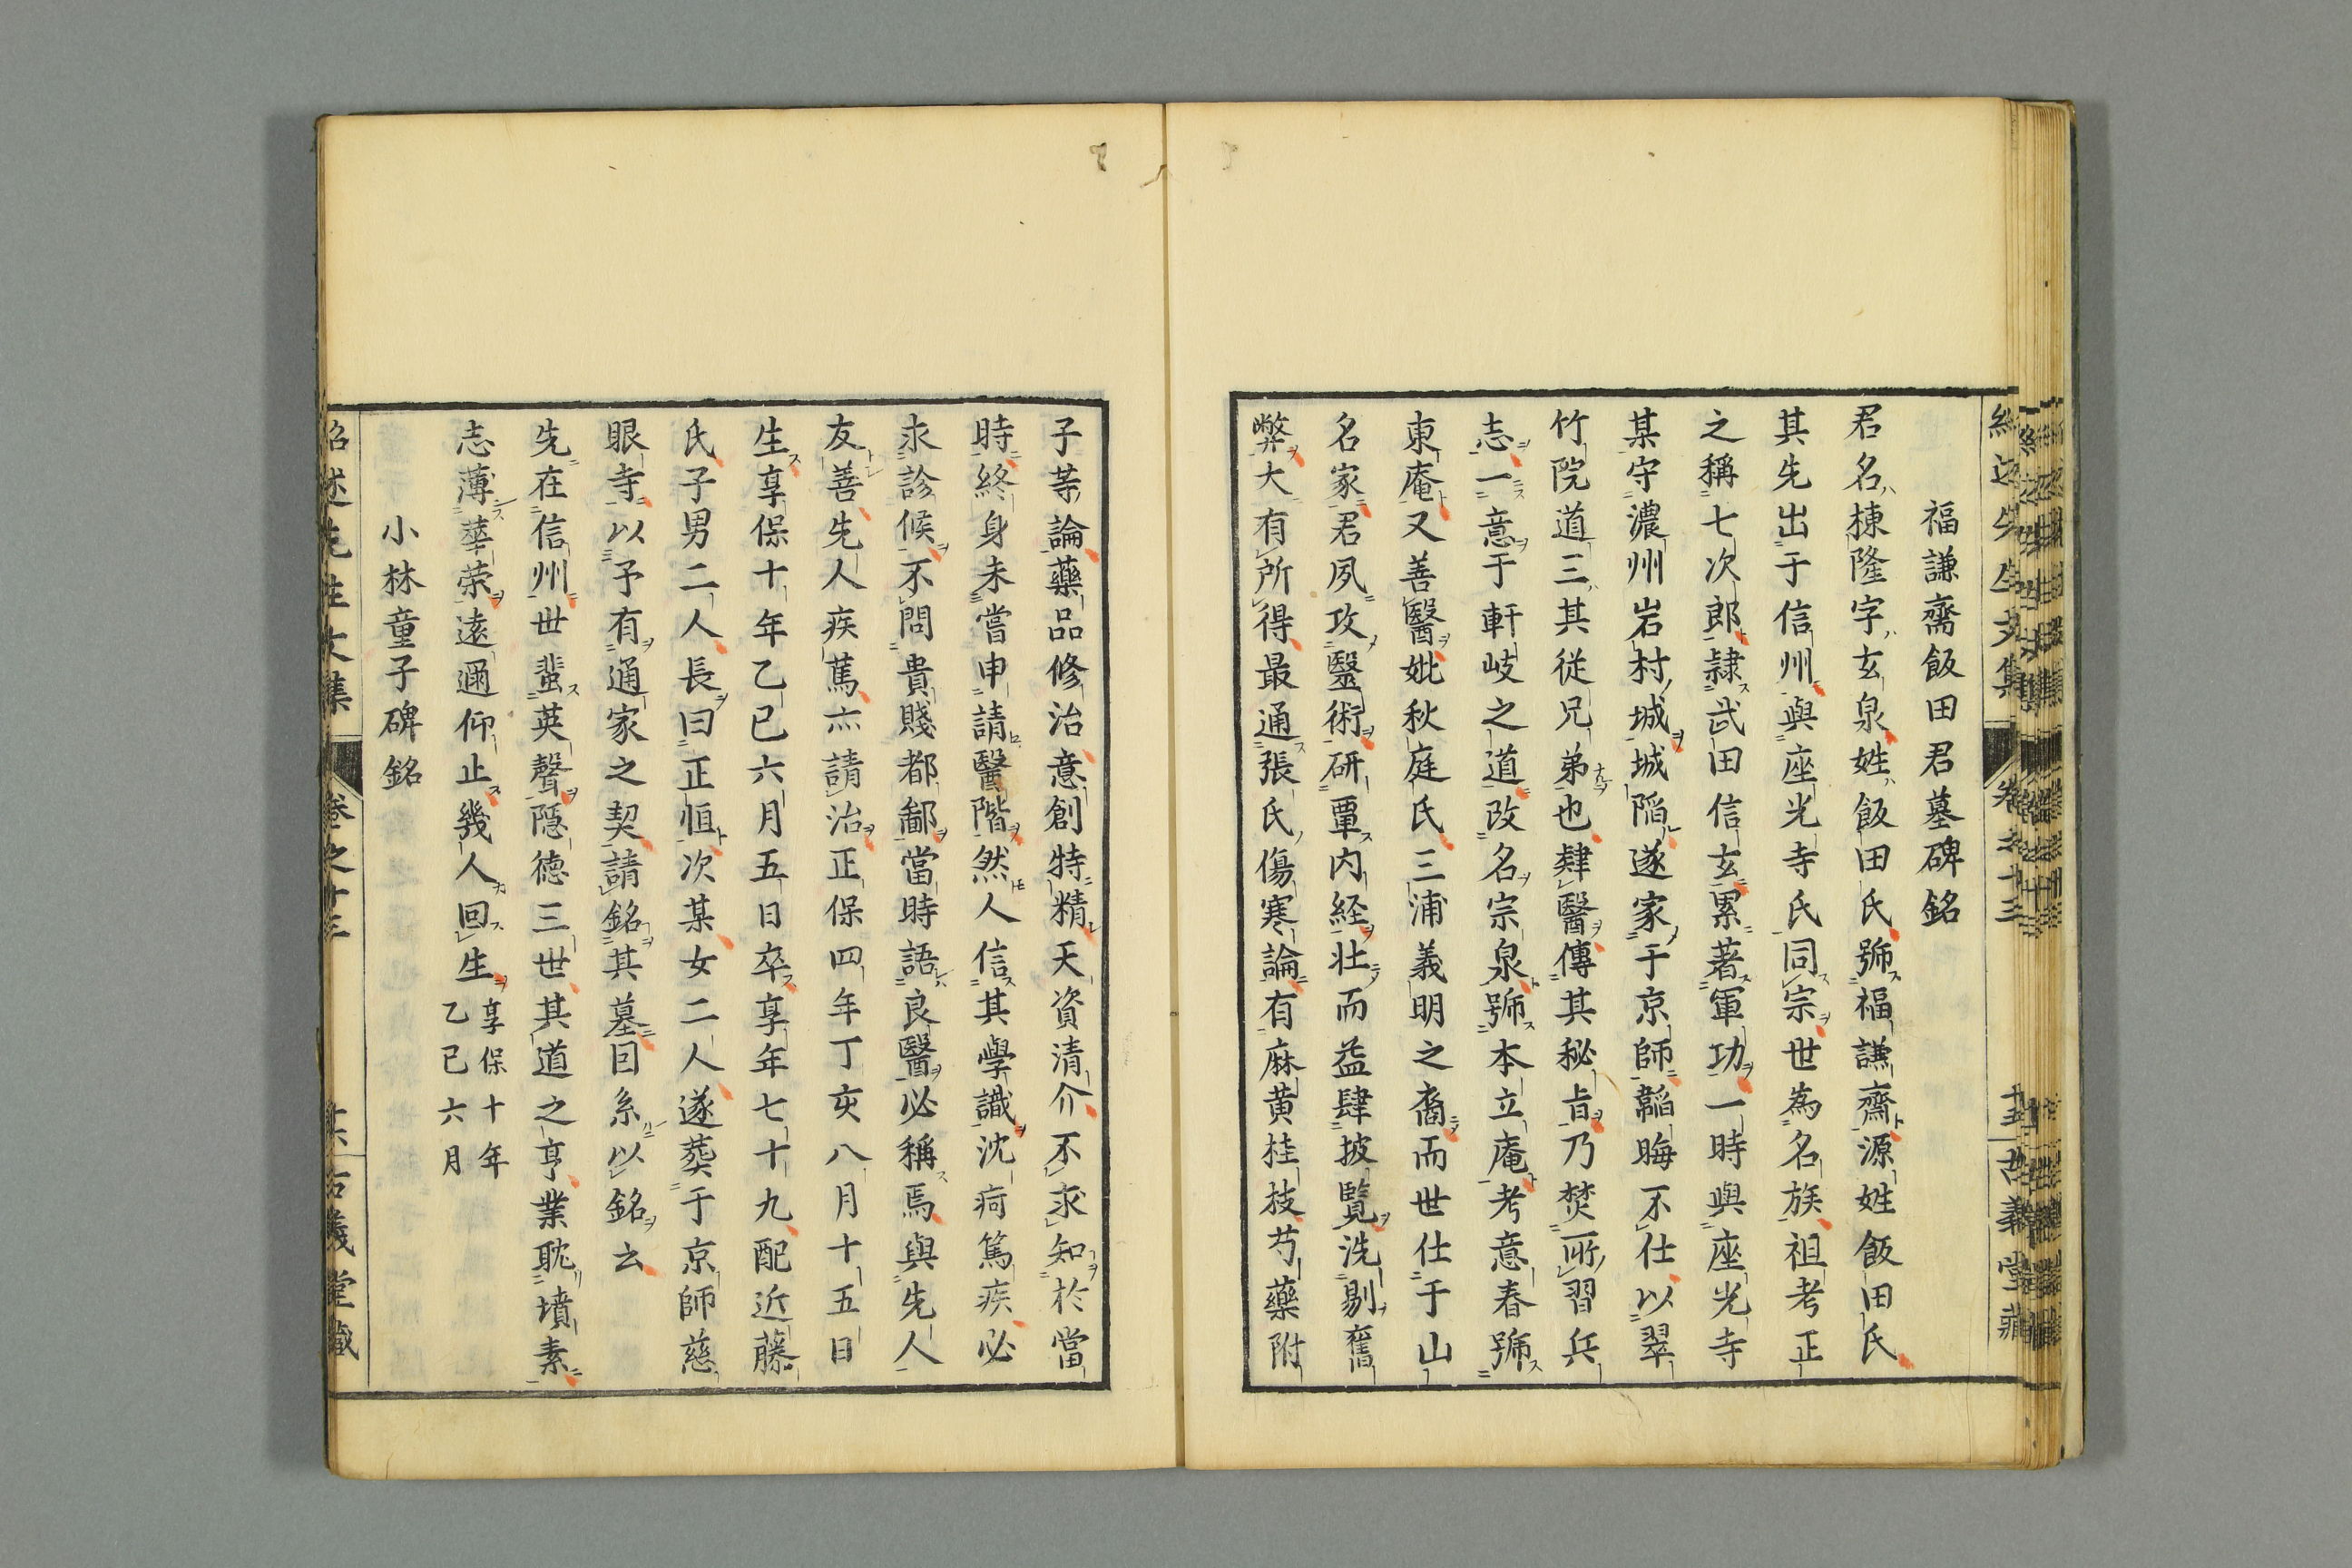 紹述先生文集 卷之十三 十五 古義堂藏
福謙齋飯田君墓碑銘
君名棟隆字玄泉姓飯田氏號福謙齋源姓飯田氏
其先出于信州與座光寺氏同宗世為名族祖考正
之稱七次郎隷武田信玄累著軍功一時與座光寺
某守濃州岩村城城陷遂家于京師韜晦不仕以翠
竹院道三其從兄弟也肄醫傳其秘旨乃焚所習兵
志一意于軒岐之道改名宗泉號本立庵考意春號
東庵又善醫妣秋庭氏三浦義明之裔而世仕于山
名家君夙攻醫術研覃內経壮而益肆披覧洗剔舊
弊大有所得最通張氏傷寒論有麻黄桂枝芍藥附
子等論藥品修治意創特精天資清介不求知於當
時終身未嘗申請醫階然人信其學識沈痾篤疾必
求診候不問貴賤都鄙當時語良醫必稱焉與先人
友善先人疾篤亦請治正保四年丁亥八月十五日
生享保十年乙巳六月五日卒享年七十九配近藤
氏子男二人長曰正恒次某女二人遂葬于京師慈
眼寺以予有通家之契請銘其墓因系以銘云
先在信州世蜚英聲隠徳三世其道之亨業耽墳素
志薄華荣遠邇仰止幾人回生 享保十年乙巳六月
小林童子碑銘
紹述先生文集 卷之十三 十六 古義堂藏